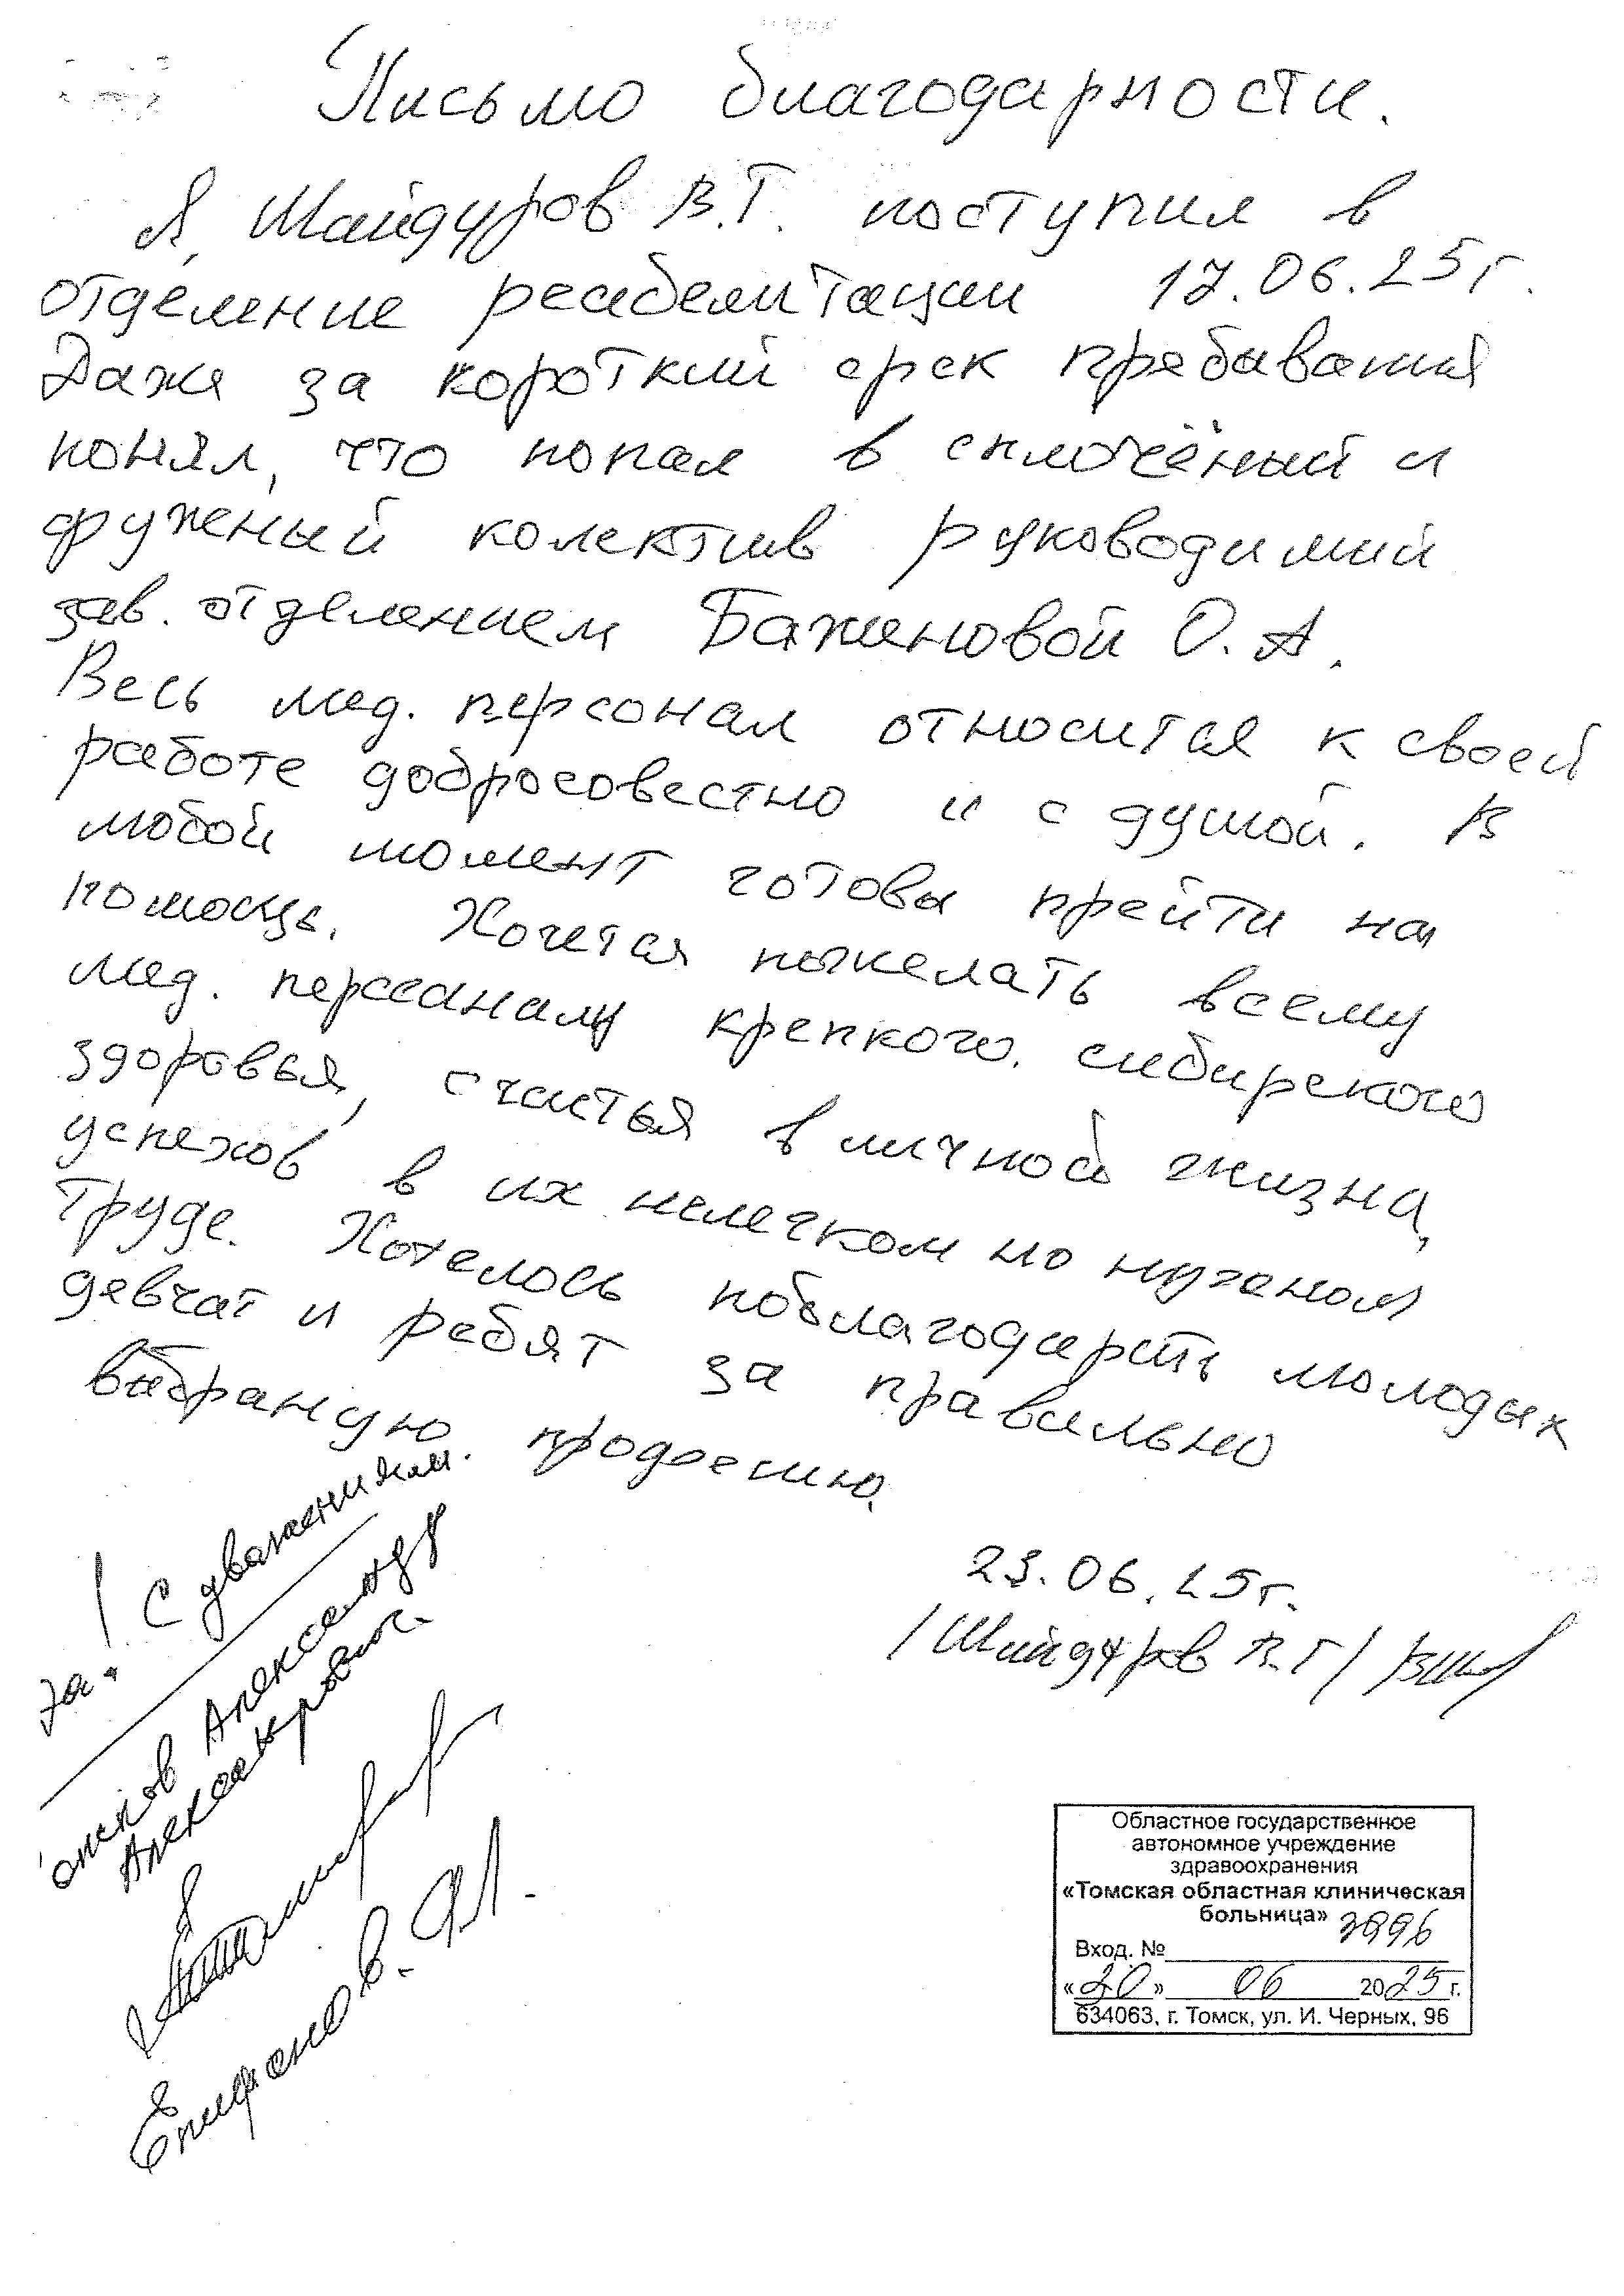 Письмо благодарности.
Я, Шайдуров В.Г. поступил в
отделение реабелитации 17.06.25г.
Даже за короткий срок пребывания
понял, что попал в сплочёный и
друженый колектив руководимий
зав. отделением Баженовой О.А.
Весь мед. персонал относится к своей
работе добросовестно и с душой. В
любой момент готовы прейти на
помощь. Хочется пожелать всему
мед. персоналу крепкого. сибирского
здоровья, счастья в личной жизни,
успехов в их нелегком но нуженом
труде. Хотелось поблагодарить молодых
девчат и ребят за правильно
выбраную. продесию.
23.06.25г.
/Шайдуров В.Г/
за! С уважением.
Александр
Александрович.
Епифанов. Я.
Областное государственное
автономное учреждение
здравоохранения
«Томская областная клиническая
больница»
Вход. № 3996
«20» 06 2025г.
634063, г. Томск, ул. И. Черных, 96